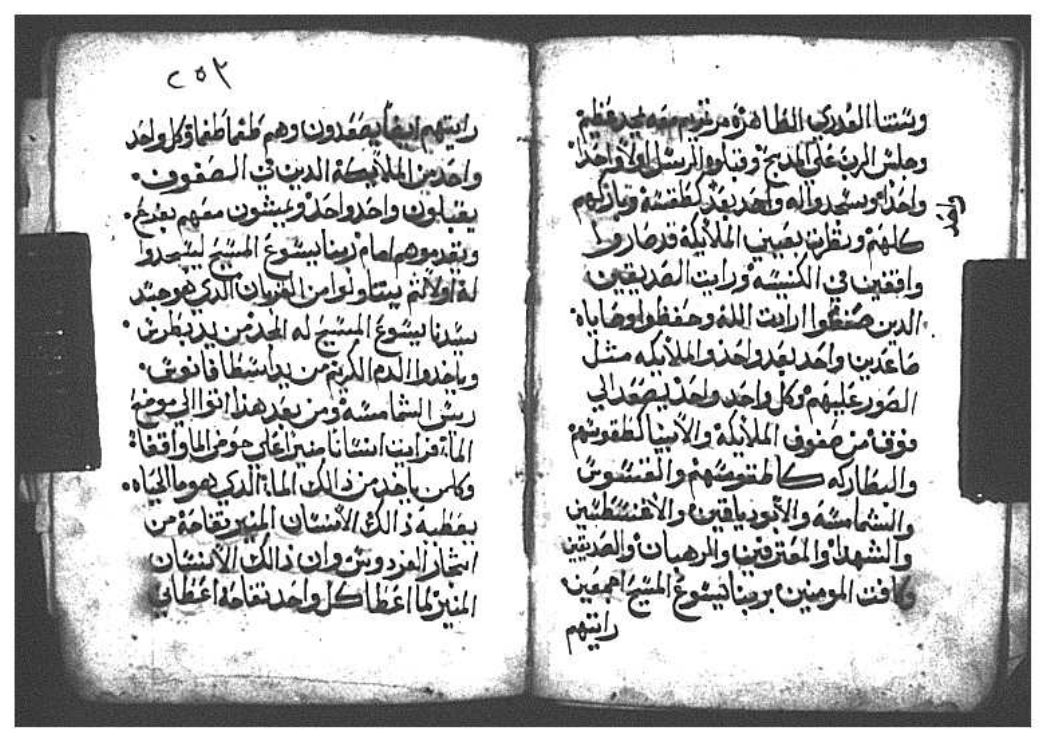 وستنا العدري الطاهرة مرتمريم معه بمجد عظيم
وجلس الرب على المدبح وقبلوه الرسل اولا واحدا
واحدا وسجدوا له واحد بعد كطقسه وباركهم
كلهم ونظرت بعيني الملايكة قد صاروا
واقفين في الكنيسه ورايت الصديقين
الدين صنعوا ارادت الله وحفظوا وصاياه
صاعدين واحد بعد واحد والملايكه مثل
الصور عليهم وكل واحد واحد يصعد الي
فوق من صفوف الملايكة والانبيا كطقوسهم
والبطاركه كاطقوسهم والقسوس
والشمامسه والابودياقنين والاغنسطسين
والشهدا والمعترفين والرهبان والصديقين
وكافت المومنين بربنا يسوع المسيح اجمعين
رايتهم
واحد
٢٥٣
رايتهم ايضا يصعدون وهم طغما طغما وكل واحد
واحد من الملايكة الدين في الصفوف
يقبلون واحد واحد ويمشون معهم بفرح
ويقدموهم امام ربنا يسوع المسيح ليسجدوا
له اولا ثم يتناولوا من القربان الدي هو جسد
سيدنا يسوع المسيح له المجد من يد بطرس
وياخدوا الدم الكريم من يد اسطافانوس
ريس الشمامسه ومن بعد هدا اتوا الي موضع
الما فرايت انسانا منيرا علي حوض الما واقفا
وكلمن ياخد من دالك الما الدي هو ما الحياه
يعطيه دالك الانسان المنير تفاحة من
اشجار الفردوس وان دالك الانسان
المنير لما اعطا كل واحد تفاحه اعطاني